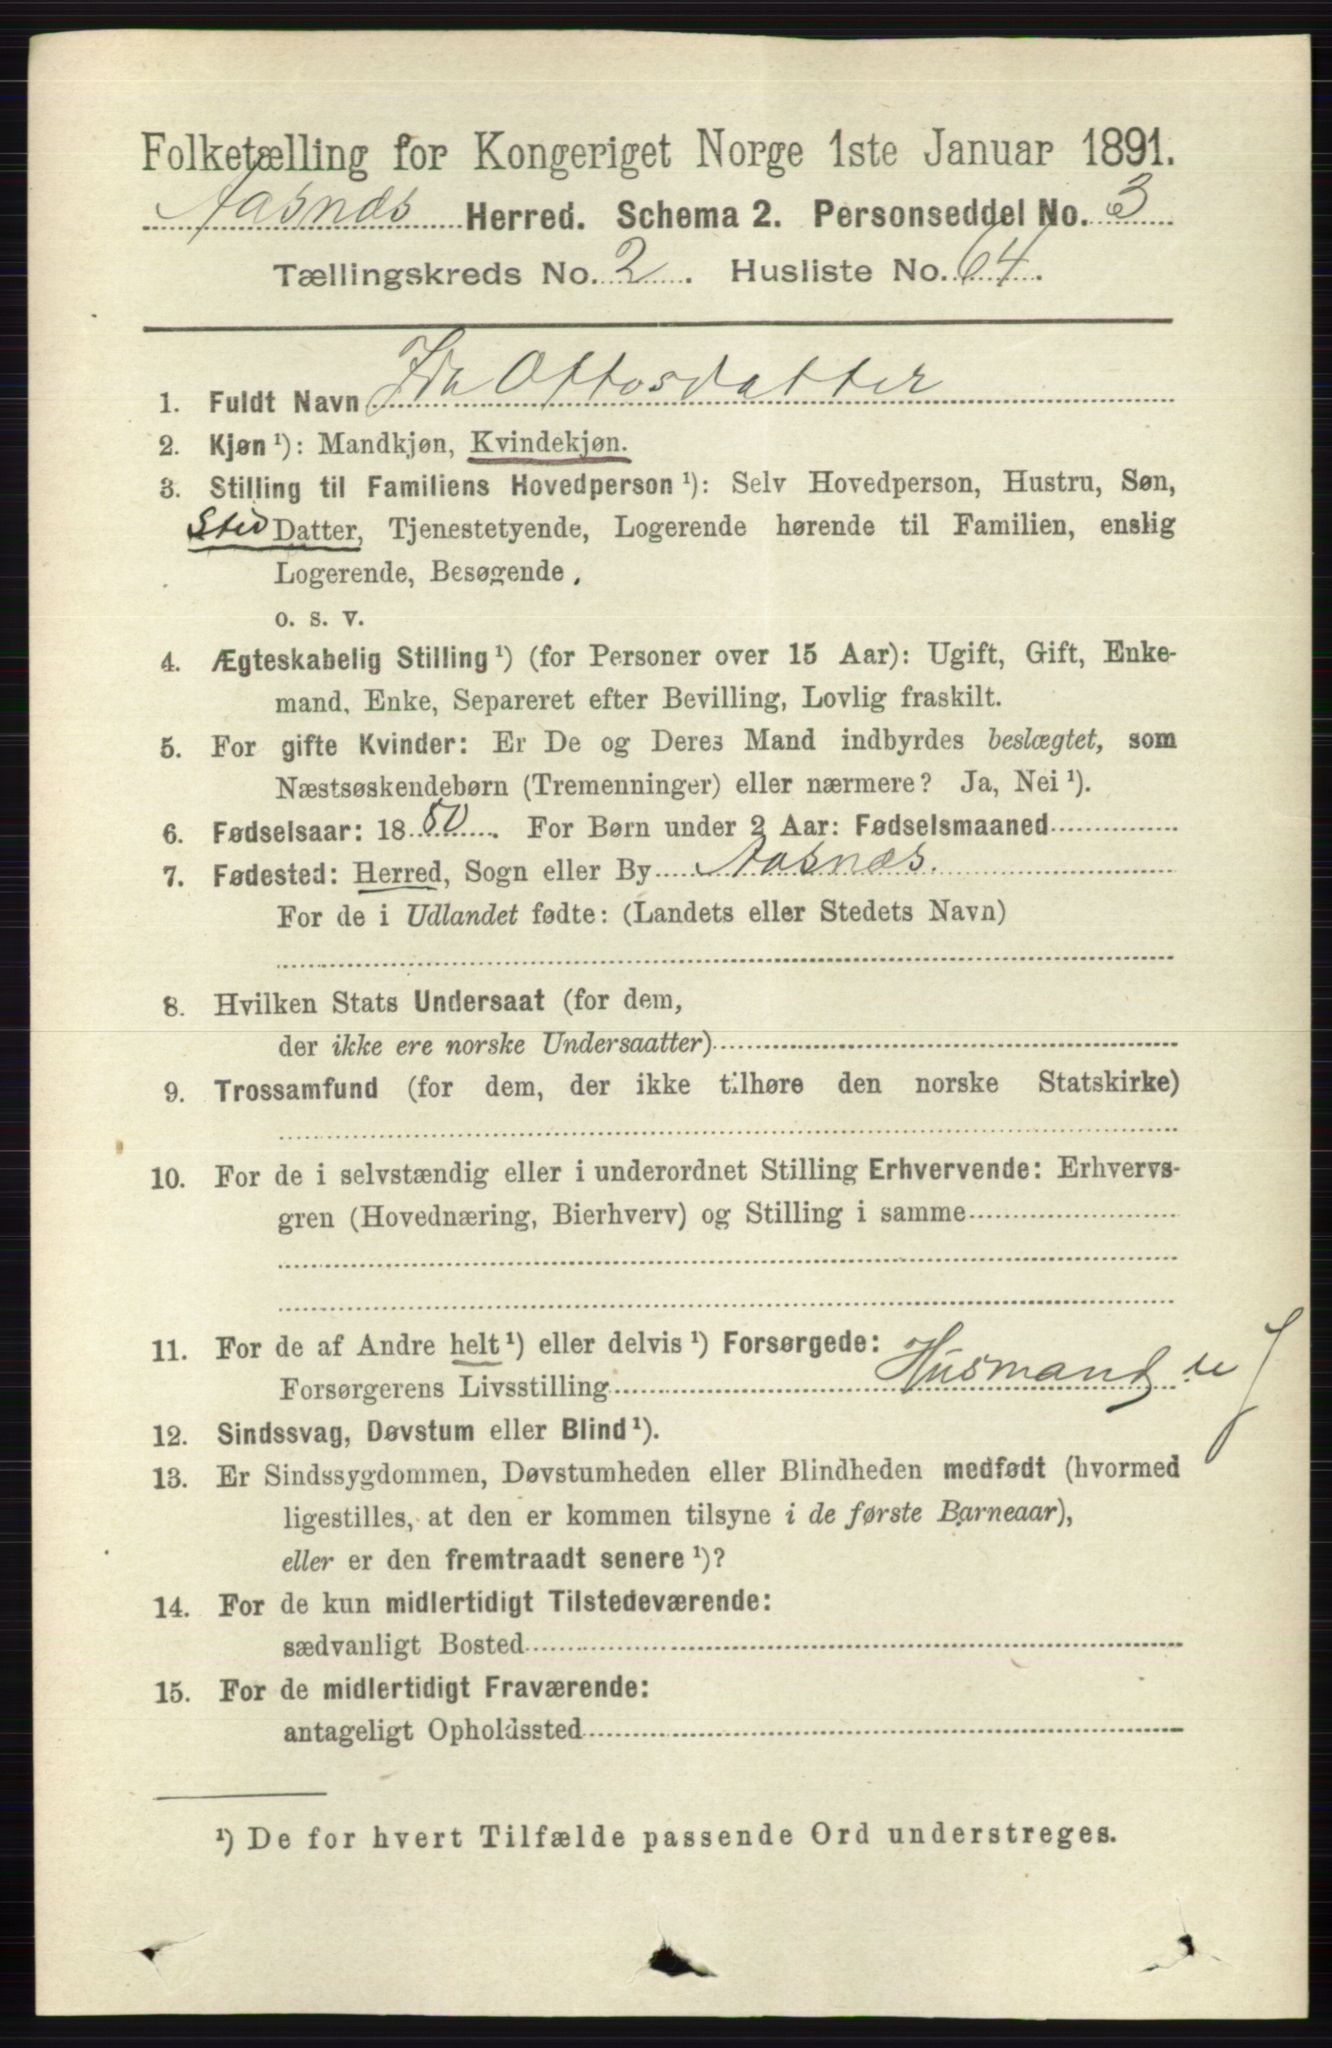 Folketælling for Kongeriget Norge 1ste Januar 1891.
Aasnæs Herred. Schema 2. Personseddel No. 3
Tællingskreds No. 2. Husliste No. 64.
1. Fuldt Navn Ida Ottosdatter
2. Kjøn ¹): Mandkjøn, Kvindekjøn.
3. Stilling til Familiens Hovedperson ¹): Selv Hovedperson, Hustru, Søn,
Sted Datter, Tjenestetyende, Logerende hørende til Familien, enslig
Logerende, Besøgende.
o. s. v.
4. Ægteskabelig Stilling ¹) (for Personer over 15 Aar): Ugift, Gift, Enke-
mand, Enke, Separeret efter Bevilling, Lovlig fraskilt.
5. For gifte Kvinder: Er De og Deres Mand indbyrdes beslægtet, som
Næstsøskendebørn (Tremenninger) eller nærmere? Ja, Nei ¹).
6. Fødselsaar: 1880. For Børn under 2 Aar: Fødselsmaaned
7. Fødested: Herred, Sogn eller By Aasnæs.
For de i Udlandet fødte: (Landets eller Stedets Navn)
8. Hvilken Stats Undersaat (for dem,
der ikke ere norske Undersaatter)
9. Trossamfund (for dem, der ikke tilhøre den norske Statskirke)
10. For de i selvstændig eller i underordnet Stilling Erhvervende: Erhvervs-
gren (Hovednæring, Bierhverv) og Stilling i samme
11. For de af Andre helt ¹) eller delvis ¹) Forsørgede:
Forsørgerens Livsstilling Husmand m J
12. Sindssvag, Døvstum eller Blind ¹).
13. Er Sindssygdommen, Døvstumheden eller Blindheden medfødt (hvormed
ligestilles, at den er kommen tilsyne i de første Barneaar),
eller er den fremtraadt senere ¹)?
14. For de kun midlertidigt Tilstedeværende:
sædvanligt Bosted
15. For de midlertidigt Fraværende:
antageligt Opholdssted
¹) De for hvert Tilfælde passende Ord understreges.